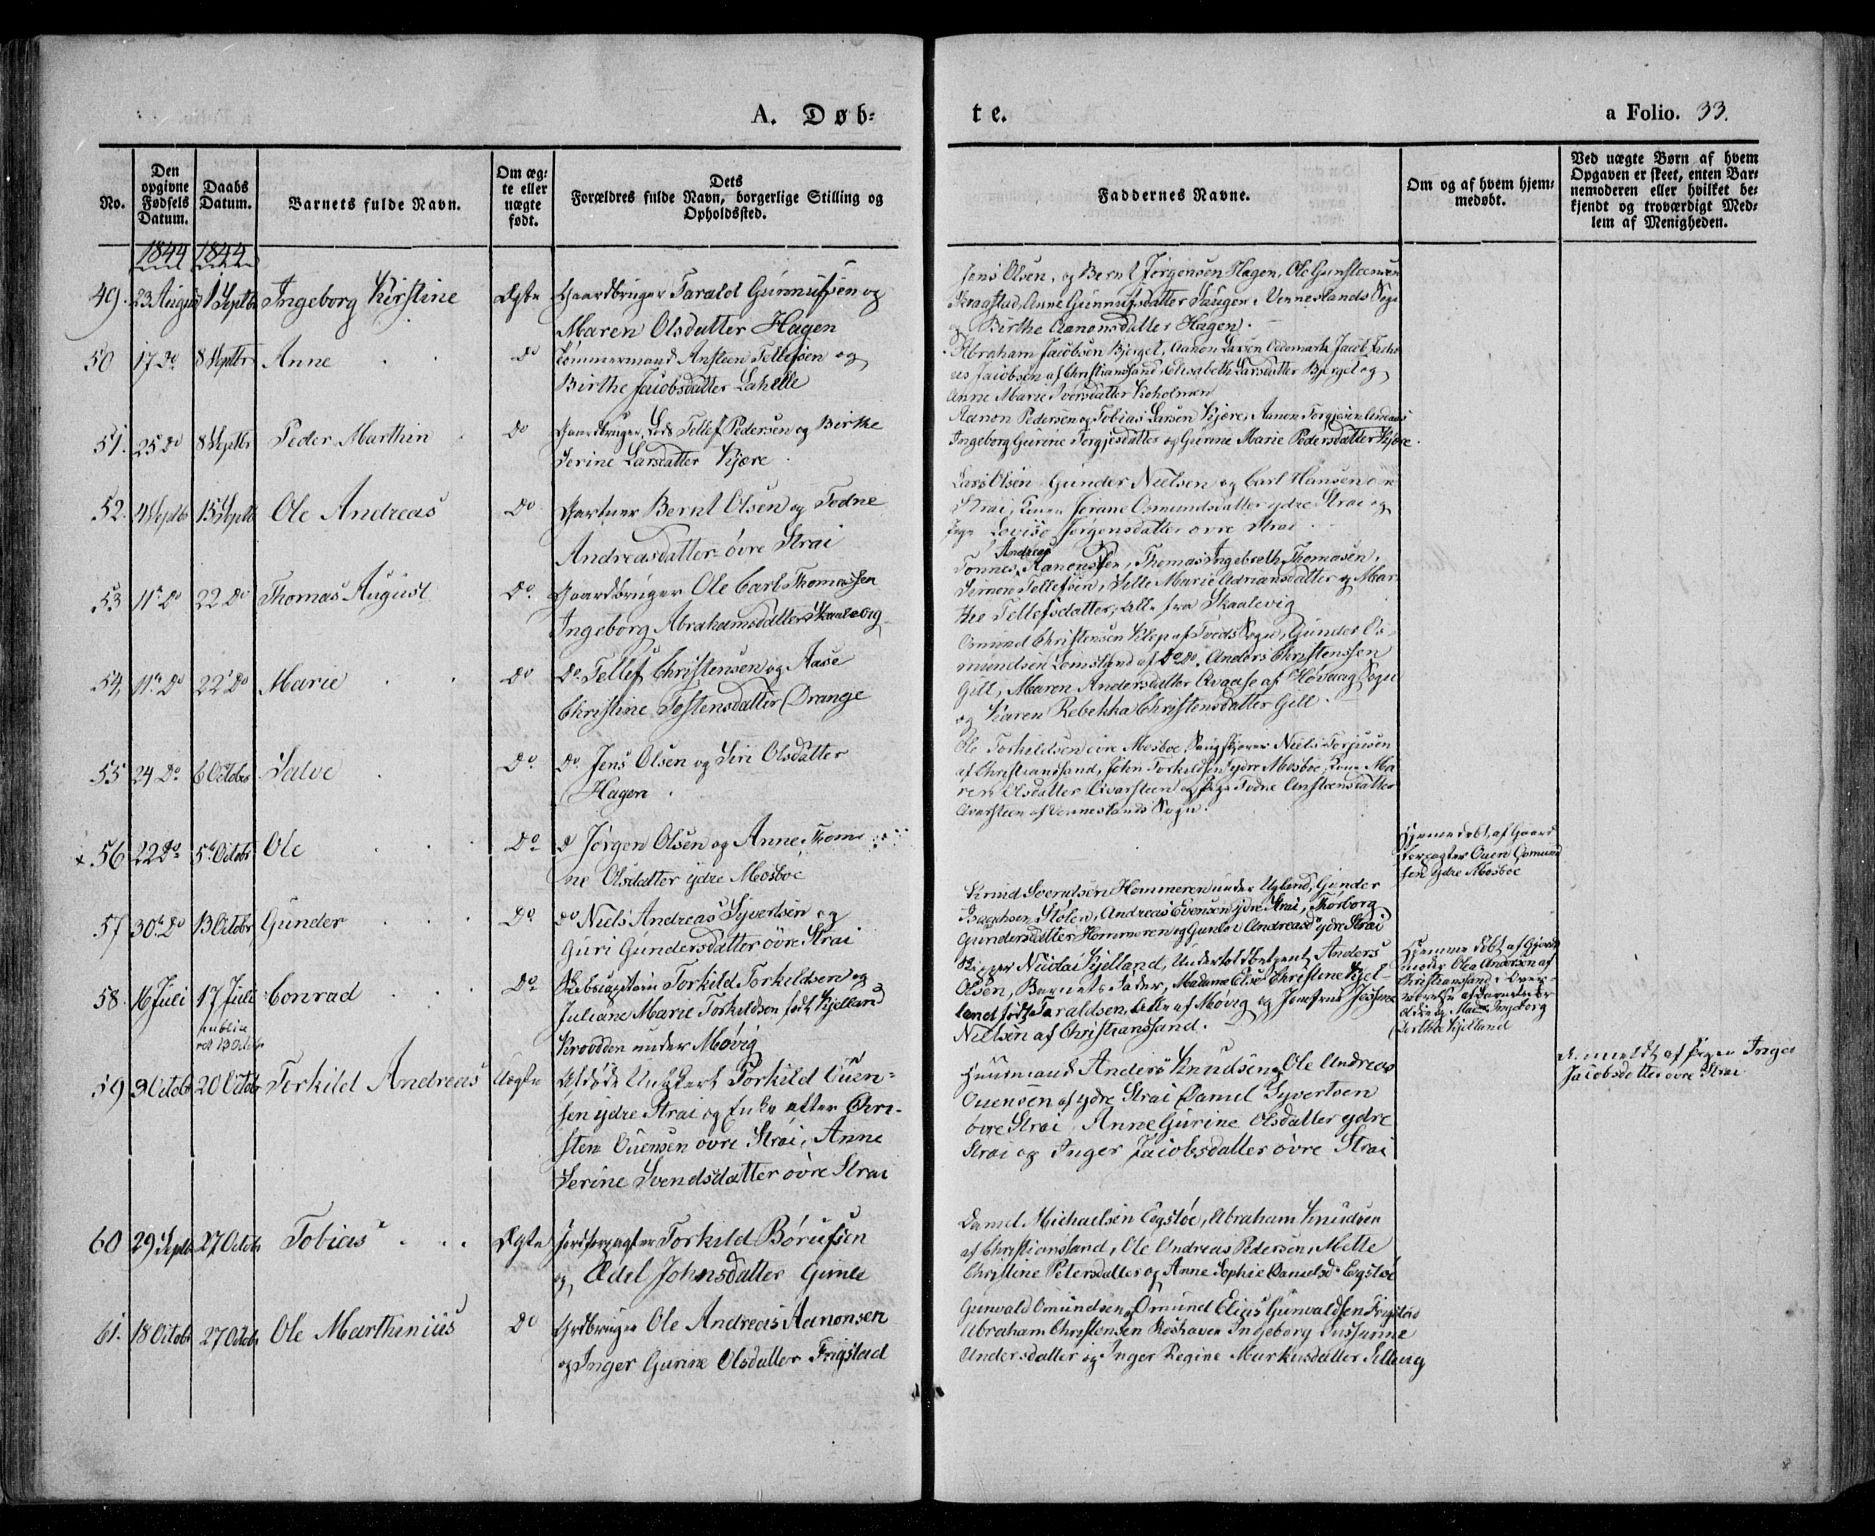 A. Døb-
te.
a Folio. 33.
No.
Den opgivne Fødsels Datum.
Daabs Datum.
Barnets fulde Navn.
Om ægte eller uægte født.
Dets Forældres fulde Navn, borgerlige Stilling og Opholdssted.
Faddernes Navne.
Om og af hvem hjemmedøbt.
Ved uægte Børn af hvem Opgaven er skeet, enten Barnemoderen eller hvilket bekjendt og troværdigt Medlem af Menigheden.
1844 1844
49. 23 August 1 Septbr Ingeborg Kirstine Ægte Gaardbruger Tarald Gunnufsen og
Maren Olsdatter Hagen
Jens Olsen, og Bernt Jørgensen Hagen, Ole Gunsteensen
Kragstad, Anne Gunnufsdatter Haugen, Venneslands Sogn
og Birthe Aanonsdatter Hagen.
50 17 Do 8 Septbr Anne Do Tømmermand Ansteen Tellefsen og
Birthe Jacobsdatter Lahelle
Abraham Jacobsen Bjerget, Aanon Larsen Oddemark, Jacob
Jacobsen af Christiansand, Elisabeth Larsdatter Bjerget og
Anne Marie Iversdatter Kjeholmen
51. 25 Do 8 Septbr Peder Marthin Do Gaardbruger, Tellef Pedersen og Birthe
Serine Larsdatter Kjære.
Aanon Pedersen og Tobias Larsen Kjære, Aanon Torgjesen
Ingeborg Gurine Torgjesdatter og Gurine Marie Pedersdatter Kjære.
52. 4 Septbr 15 Septbr Ole Andreas Do Gartner Bernt Olsen og Todne
Andreasdatter øvre Strai
Lars Olsen Gunder Nielsen og Carl Hansen øvre
Strai, Konen Jorane Osmundsdatter ydre Strai og
Pige Lovise Jørgensdatter øvre Strai.
53 11te Do 22 Do Thomas August Do. Gaardbruger Ole Carl Thomassen
Ingeborg Abrahamsdatter Skaalevig
Tønnes Andreas Aanonsen, Thomas Ingebreth Thomasen,
Simon Tellefsen, Sille Marie Adriansdatter og Mar-
the Tellefsdatter, alle fra Skaalevig
54, 11te Do 22 Do Marie Do Do Tellef Christensen og Aase
Christine Tostensdatter Drange
Osmund Christensen Klep af Tveds Sogn, Gunder Os-
mundsen Lomsland af Do Do, Anders Christenssen
Gill, Maren Andersdatter Avaase af Høivaag Sogn
og Karen Rebekka Christensdatter Gill.
55 24 Do 6 Octobr Salve Do Do, Jens Olsen og Siri Olsdatter
Hagen.
Ole Torkildsen øvre Mosboe, Niels Torjusen
af Christiansand, John Torkildsen ydre Mosboe, Kone Ma-
ren Olsdatter Qvarsteen og Pige Todne Ansteensdatter
Qvarsteen af Venneslands Sogn.
x 56 22 Do 5te Octobr Ole Do Do Jørgen Olsen og Anne Thom
ne Olsdatter ydre Mosboe
Hjemmedøbt af Gaard
forpagter Ouen Osmund
sen ydre Mosboe
57 30te Do 13 Octobr Gunder Do Do Niels Andreas Syvertsen og
Guri Gundersdatter øvre Strai
Knud Svendsen Hommeren under Ugland, Gunder
Stølen, Andreas Evensen ydre Strai, Thorborg
Gundersdatter Hommeren og Gunild Andreasd ydre Strai
58. 16 Juli 17 Juli Conrad Do Skibscaptain Torkild Torkildsen og
publice
13 Octobr
Juliane Marie Torkildsen født Kjelland
Krodden under Møvig
Nicolai Kjelland, Undertoldbetjent Anders
Olsen, Barnets Fader, Madame Else Christine Kjel-
land født Taraldsen, alle af Møvig og Jomfrue Josine
Nielsen af Christiansand.
Hjemmedøbt af Gjord-
moder Olea Andersen af
Christiansand i Over-
værelse af Barnets For
ældre og Mad. Ingeborg
Kjelland
59 3 Octobr 20 Octobr Torkild Andreas Uægte Afdøde Ungkarl Torkild Ouen-
sen ydre Strai og Enke efter Chri-
sten Ouensen øvre Strai, Anne
Serine Svendsdatter øvre Strai
Huusmand Anders Knudsen, Ole Andreas
Ouensen af ydre Strai Daniel Syvertsen
øvre Strai, Anne Gurine Olsdatter ydre
Strai og Inger Jacobsdatter øvre Strai
Anmeldt af Pigen Inger
Jacobsdatter øvre Strai
60 29 Septbr 27 Octobr Tobias Ægte Jordforpagter Torkild Børufsen
og Ædel Johnsdatter Gimle
Daniel Michaelsen Eegstøe, Abraham Knudsen
af Christiansand, Ole Andreas Pedersen, Mette
Christine Petersdatter og Anne Sophie Danielsd Eegstøe
61. 18 Octobr 27 Octobr Ole Marthinius Do Grdbruger Ole Andreas Aanonsen
og Inger Gurine Olsdatter Frigstad
Gunvald Omundsen, Omund Elias Gunvaldsen Frigstad
Abraham Christensen Roshaven Ingeborg Susanne
Andersdatter og Inger Regine Markusdatter